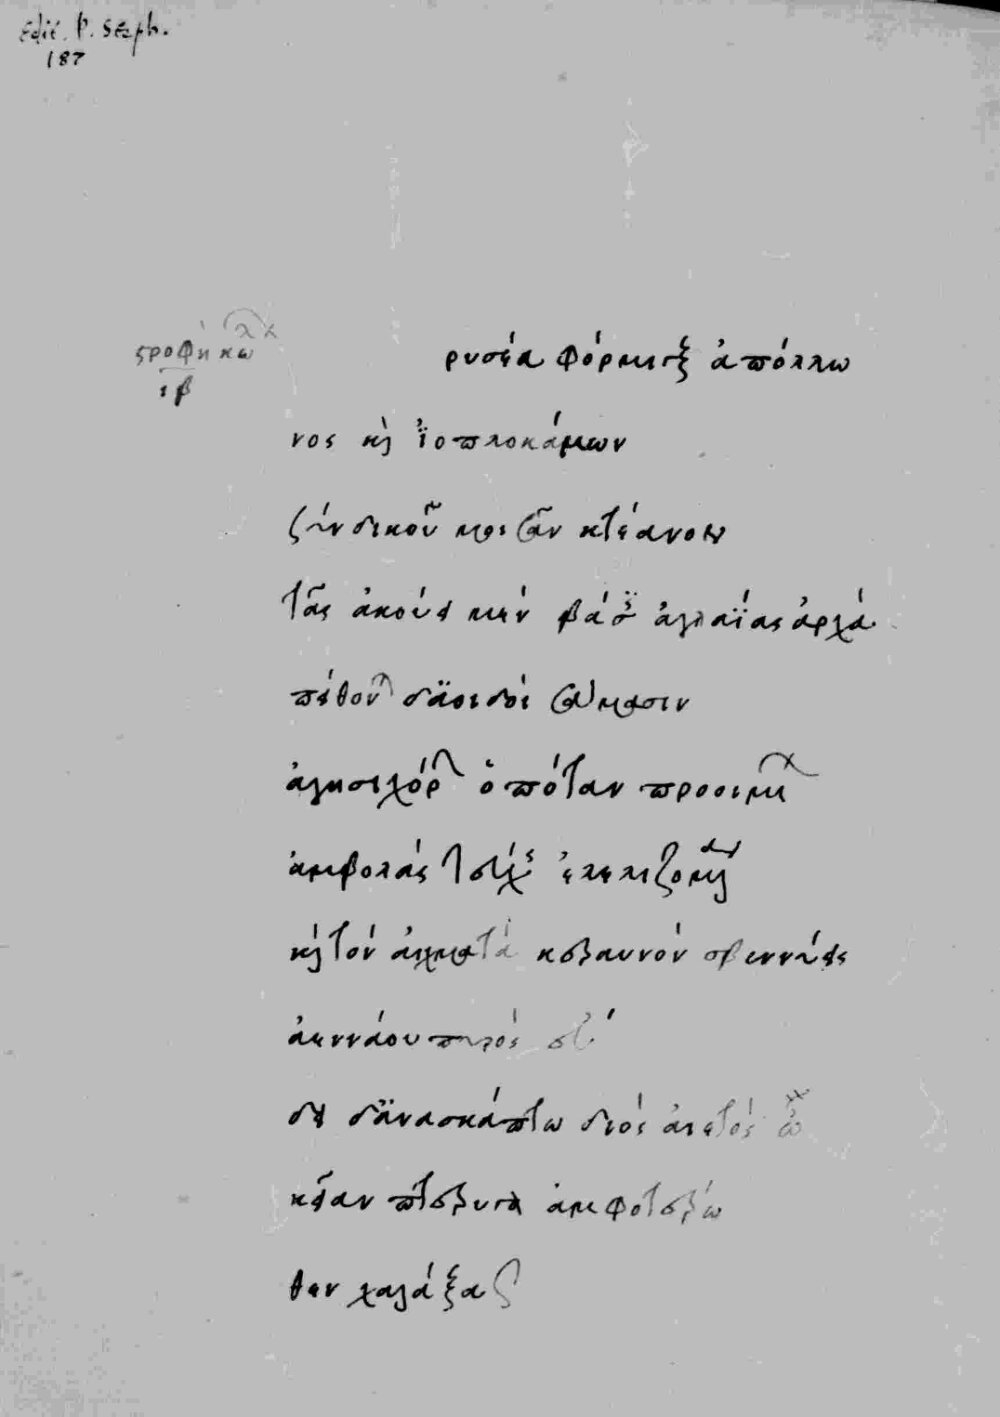 Edit. P. Steph.
187
στροφὴ κώλων
ιβ
ρυσέα φόρμιγξ ἀπόλλω
νος καὶ ἰοπλοκάμων
σύνδικον μοισᾶν κτέανον
τᾶς ἀκούει μὲν βάσις ἀγλαΐας ἀρχά
πείθονται δ' ἀοιδοὶ σάμασιν
ἁγησιχόρων ὁπόταν προοιμίων
ἀμβολὰς τεύχῃς ἐλελιζομένα
καὶ τὸν αἰχματὰν κεραυνὸν σβεννύεις
ἀεννάου πυρός
δει δ' ἀνασκάπτω διὸς αἰετός ὠ
κεῖαν πτέρυγα ἀμφοτέρω
θεν χαλάξας